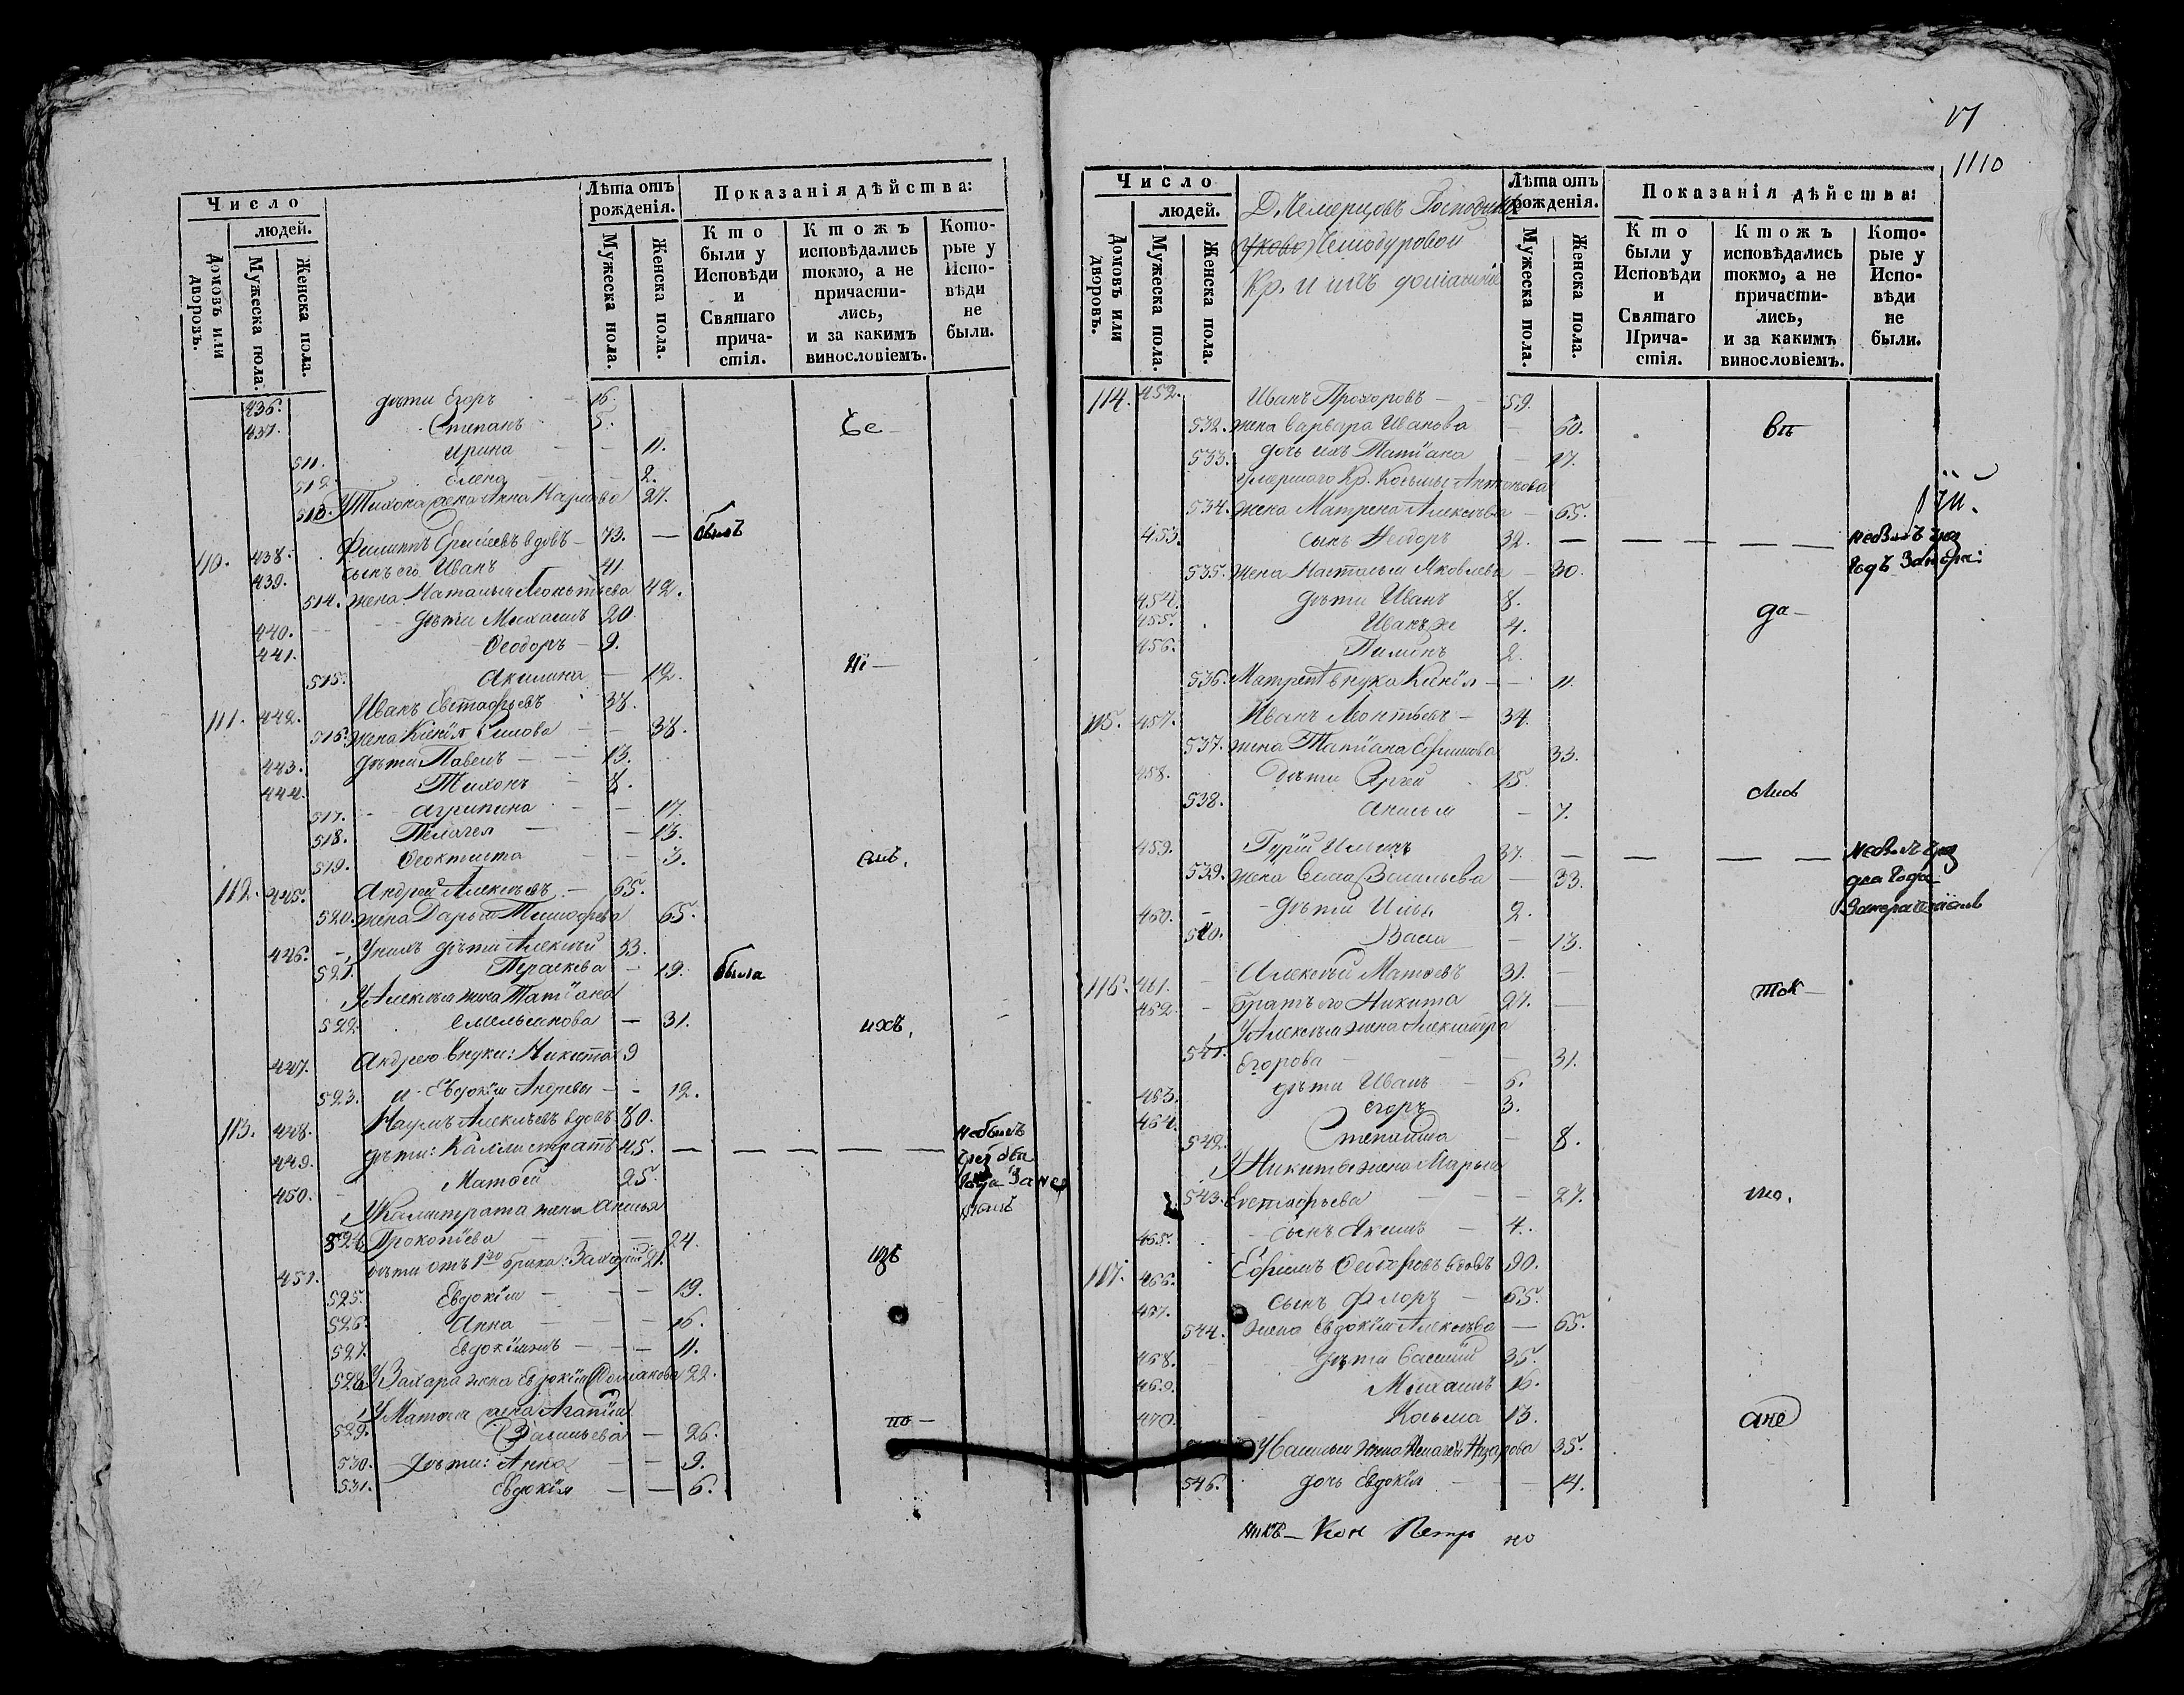 Число
людей.
Домовъ или дворовъ.
Мужеска пола.
Женска пола.
Лѣта отъ рожденія.
Мужеска пола.
Женска пола.
Показанія дѣйства:
Кто были у Исповѣди и Святаго прича-стія.
Ктожъ исповѣдались токмо, а не причасти-лись, и за какимъ винословіемъ.
Кото-рые у Испо-вѣди не были.
436. дѣти Егоръ 16.
437. Степанъ 5.
511. Ирина 11.
512. Елена 2.
513. У Тихона жена Анна Карпова 27.
110. 438. Филиппъ Ермиевъ вдовъ 73. — былъ
439. сынъ его Иванъ 41
514. жена Наталья Леонтьева 42.
440. дѣти Михаилъ 20
441. Ѳеодоръ 9.
515. Акилина 12.
111. 442. Иванъ Евстафьевъ 38.
516. жена Ксенія Симова 38.
443. дѣти Павелъ 13.
444. Тихонъ 8.
517. Агрипина 17.
518. Пелагея 13.
519. Ѳеоктиста 3.
112. 445. Андрей Алексѣевъ 65.
520. жена Дарья Тимофеева 65.
446. У нихъ дѣти Алексѣй 33.
521. Параскева 19. была
У Алексѣя жена Татіана
522. Емельянова — 31. ихъ,
447. Андрею внуки: Никита 9
523. и Евдокія Андревы 12.
113. 448. Наумъ Алексѣевъ вдовъ 80.
449. дѣти: Каллистратъ 45. — — — — — небылъ
450. Матѳей 25.
У Калистрата жена Аксинья
524. Прокопіева 24.
451. дѣти отъ 1го брака: Захарій 21.
525. Евдокія 19.
526. Анна 16.
527. Евдокіяжъ 11.
528. У Захара жена Евдокія 22.
У Матѳея жена Агапія
529. Васильева — 26. по —
530. дѣти: Анна 9.
531. Евдокія 6.
1110
Число
людей.
Домовъ или дворовъ.
Мужеска пола.
Женска пола.
Кр. и ихъ домашніе
Лѣта отъ рожденія.
Мужеска пола.
Женска пола.
Показанія дѣйства:
Кто были у Исповѣди и Святаго Прича-стія.
Ктожъ исповѣдались токмо, а не причасти-лись, и за какимъ винословіемъ.
Кото-рые у Испо-вѣди не были.
114. 452. Иванъ Прохоровъ 59.
532. жена Варвара Иванова 60.
533. дочь ихъ Татіана 17.
Умершаго Кр. Косьмы Антонова
534. жена Матрена Алексѣева 65.
453. сынъ Ѳеодоръ 32. — — — —
535. Жена Настасья Яковлева 30.
454. дѣти Иванъ 8.
455. Иванъ же 4. да —
456. Пименъ 2.
536. Матренѣ внука Ксенія 11.
115. 457. Иванъ Леонтьевъ 34.
537. жена Татіана Ефимова 33.
458. дѣти Сергѣй 15.
538. 7.
459. Гурій Ильинъ 37. — — — —
539. жена Васильева — 33. два года
460. дѣти Илья 2.
540. 13.
116. 461. Алексѣй Матѳевъ 31.
462. братъ его Никита 27.
У Алексѣя жена Александра
541. Егорова 31.
463. дѣти Иванъ 6.
464. Егоръ 3.
542. Степанида 8.
У Никиты жена Марья
543. Евстафьева 27.
465. сынъ Акимъ 4.
117. 466. Ефимъ Ѳеодоровъ вдовъ 90.
467. сынъ Флоръ 65.
544. жена Евдокія Алексѣева — 65.
468. дѣти Василій 35.
469. Михаилъ 16.
470. Косьма 13. а не
У Василья жена Пелагея Назарова 35.
546. дочь Евдокія 14.